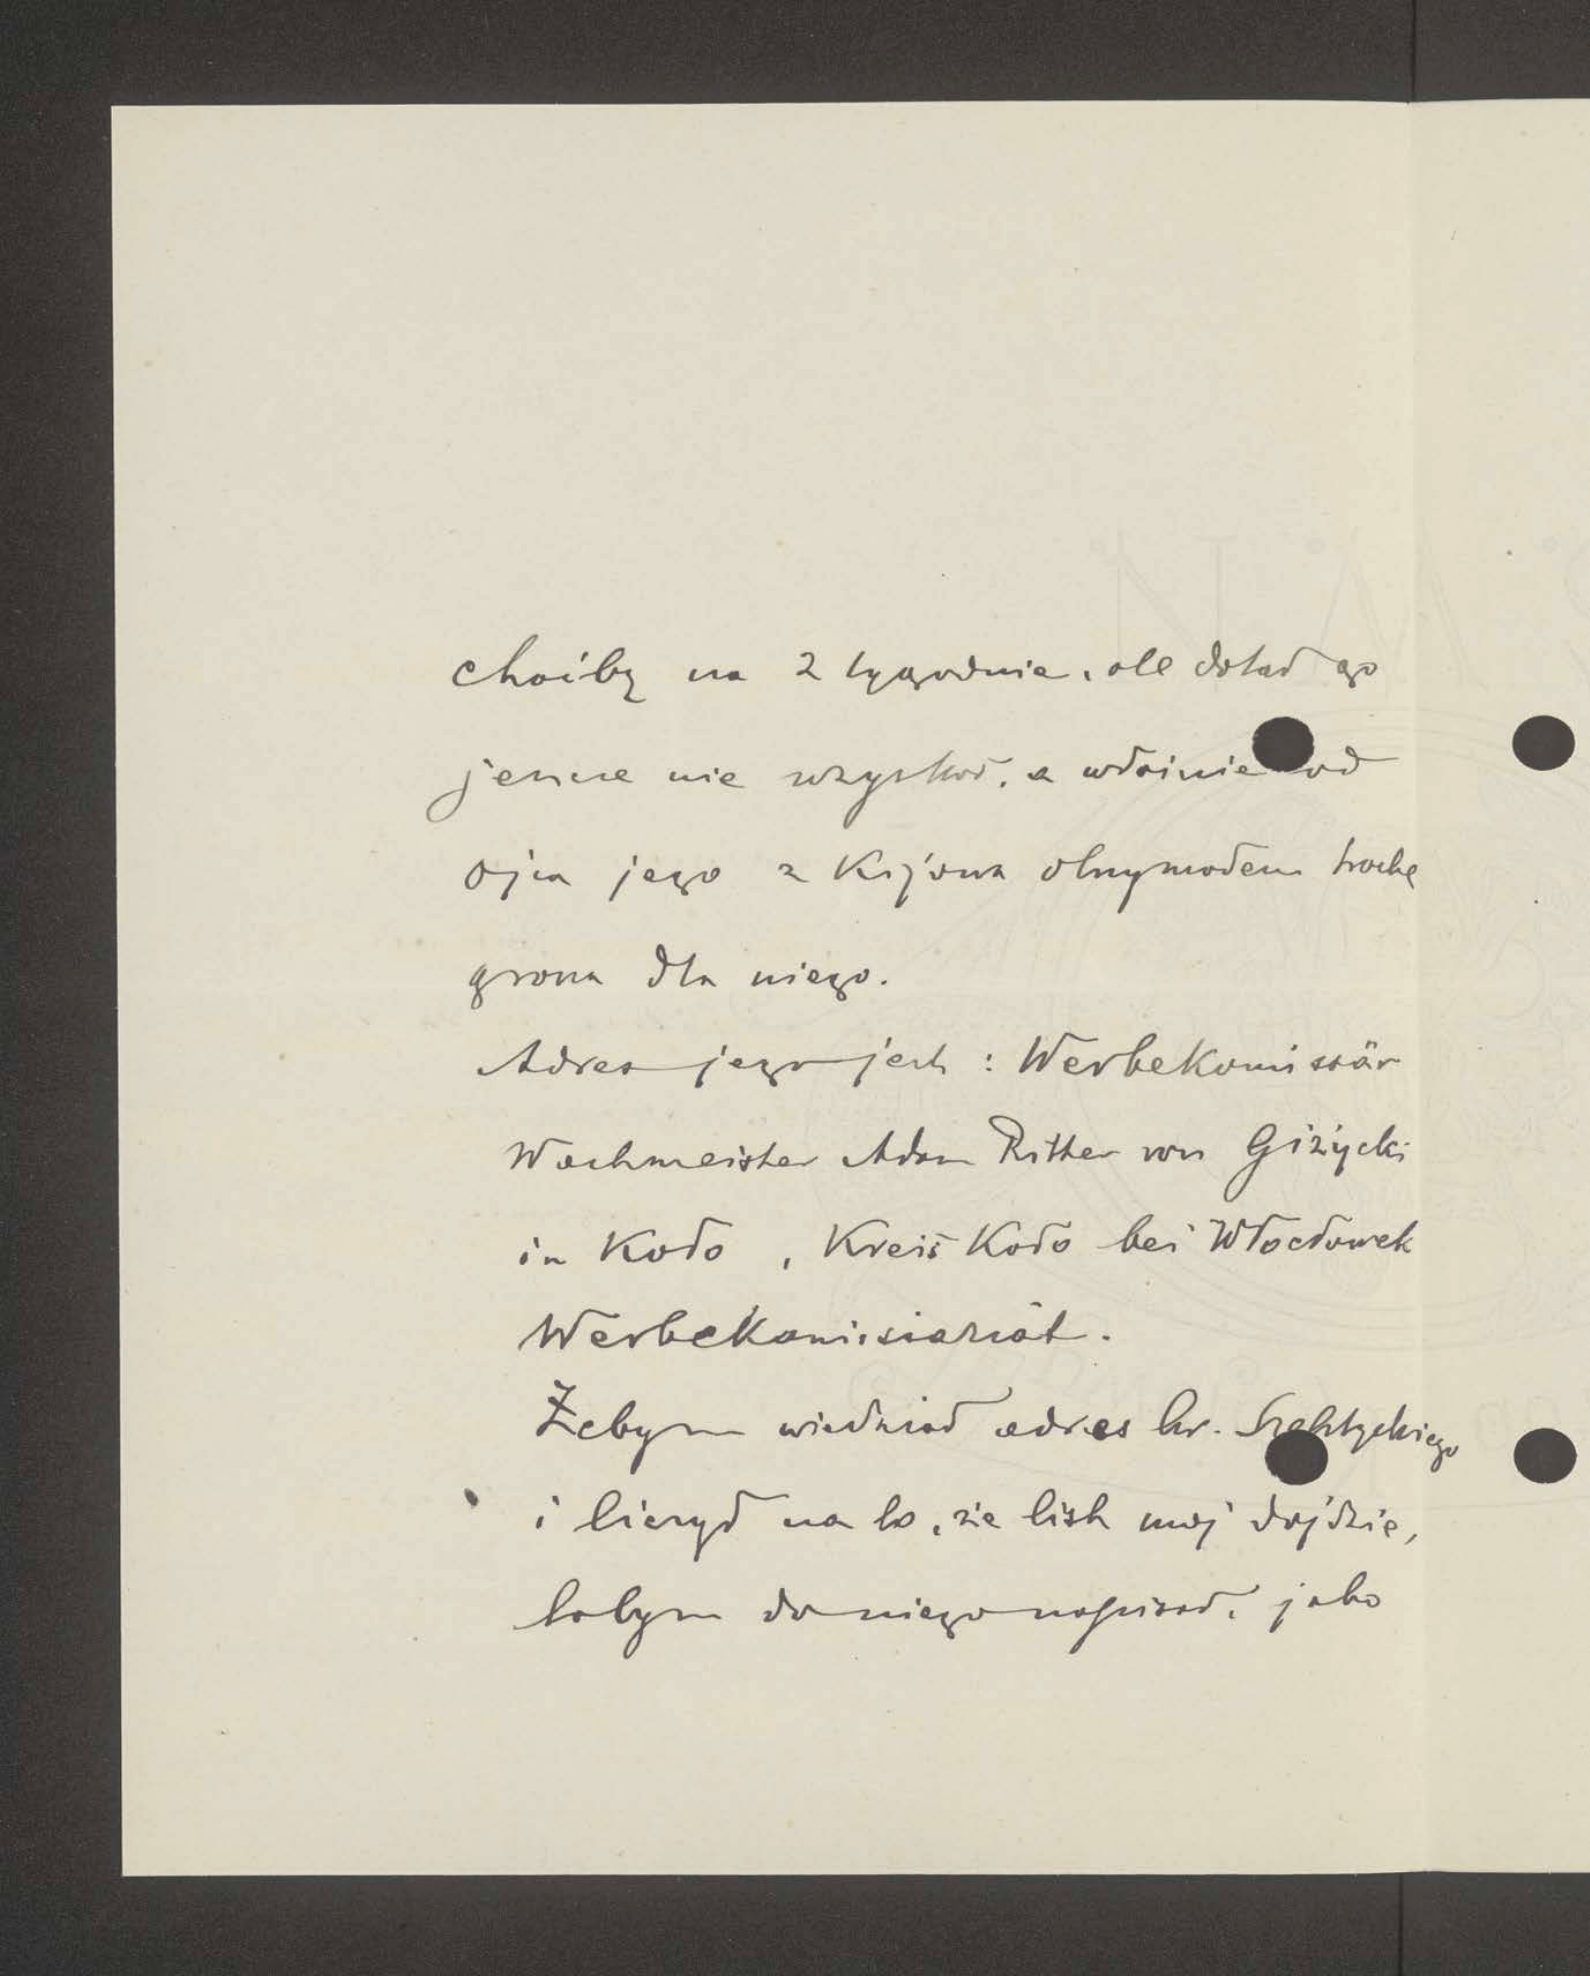 choćby na 2 tygodnie, ale dotąd go
jeszcze nie uzyskał, a właśnie od
ojca jego z Kijowa otrzymałem trochę
grona dla niego.
Adres jego jest: Werbekomissär
Wachmeister Adam Ritter von Giżycki
in Koło, Kreis Koło bei Włocławek
Werbekomissariat.
Żebym wiedział adres hr. Szeptyckiego
i liczył na to, że list mój dojdzie,
tobym do niego napisał, jako